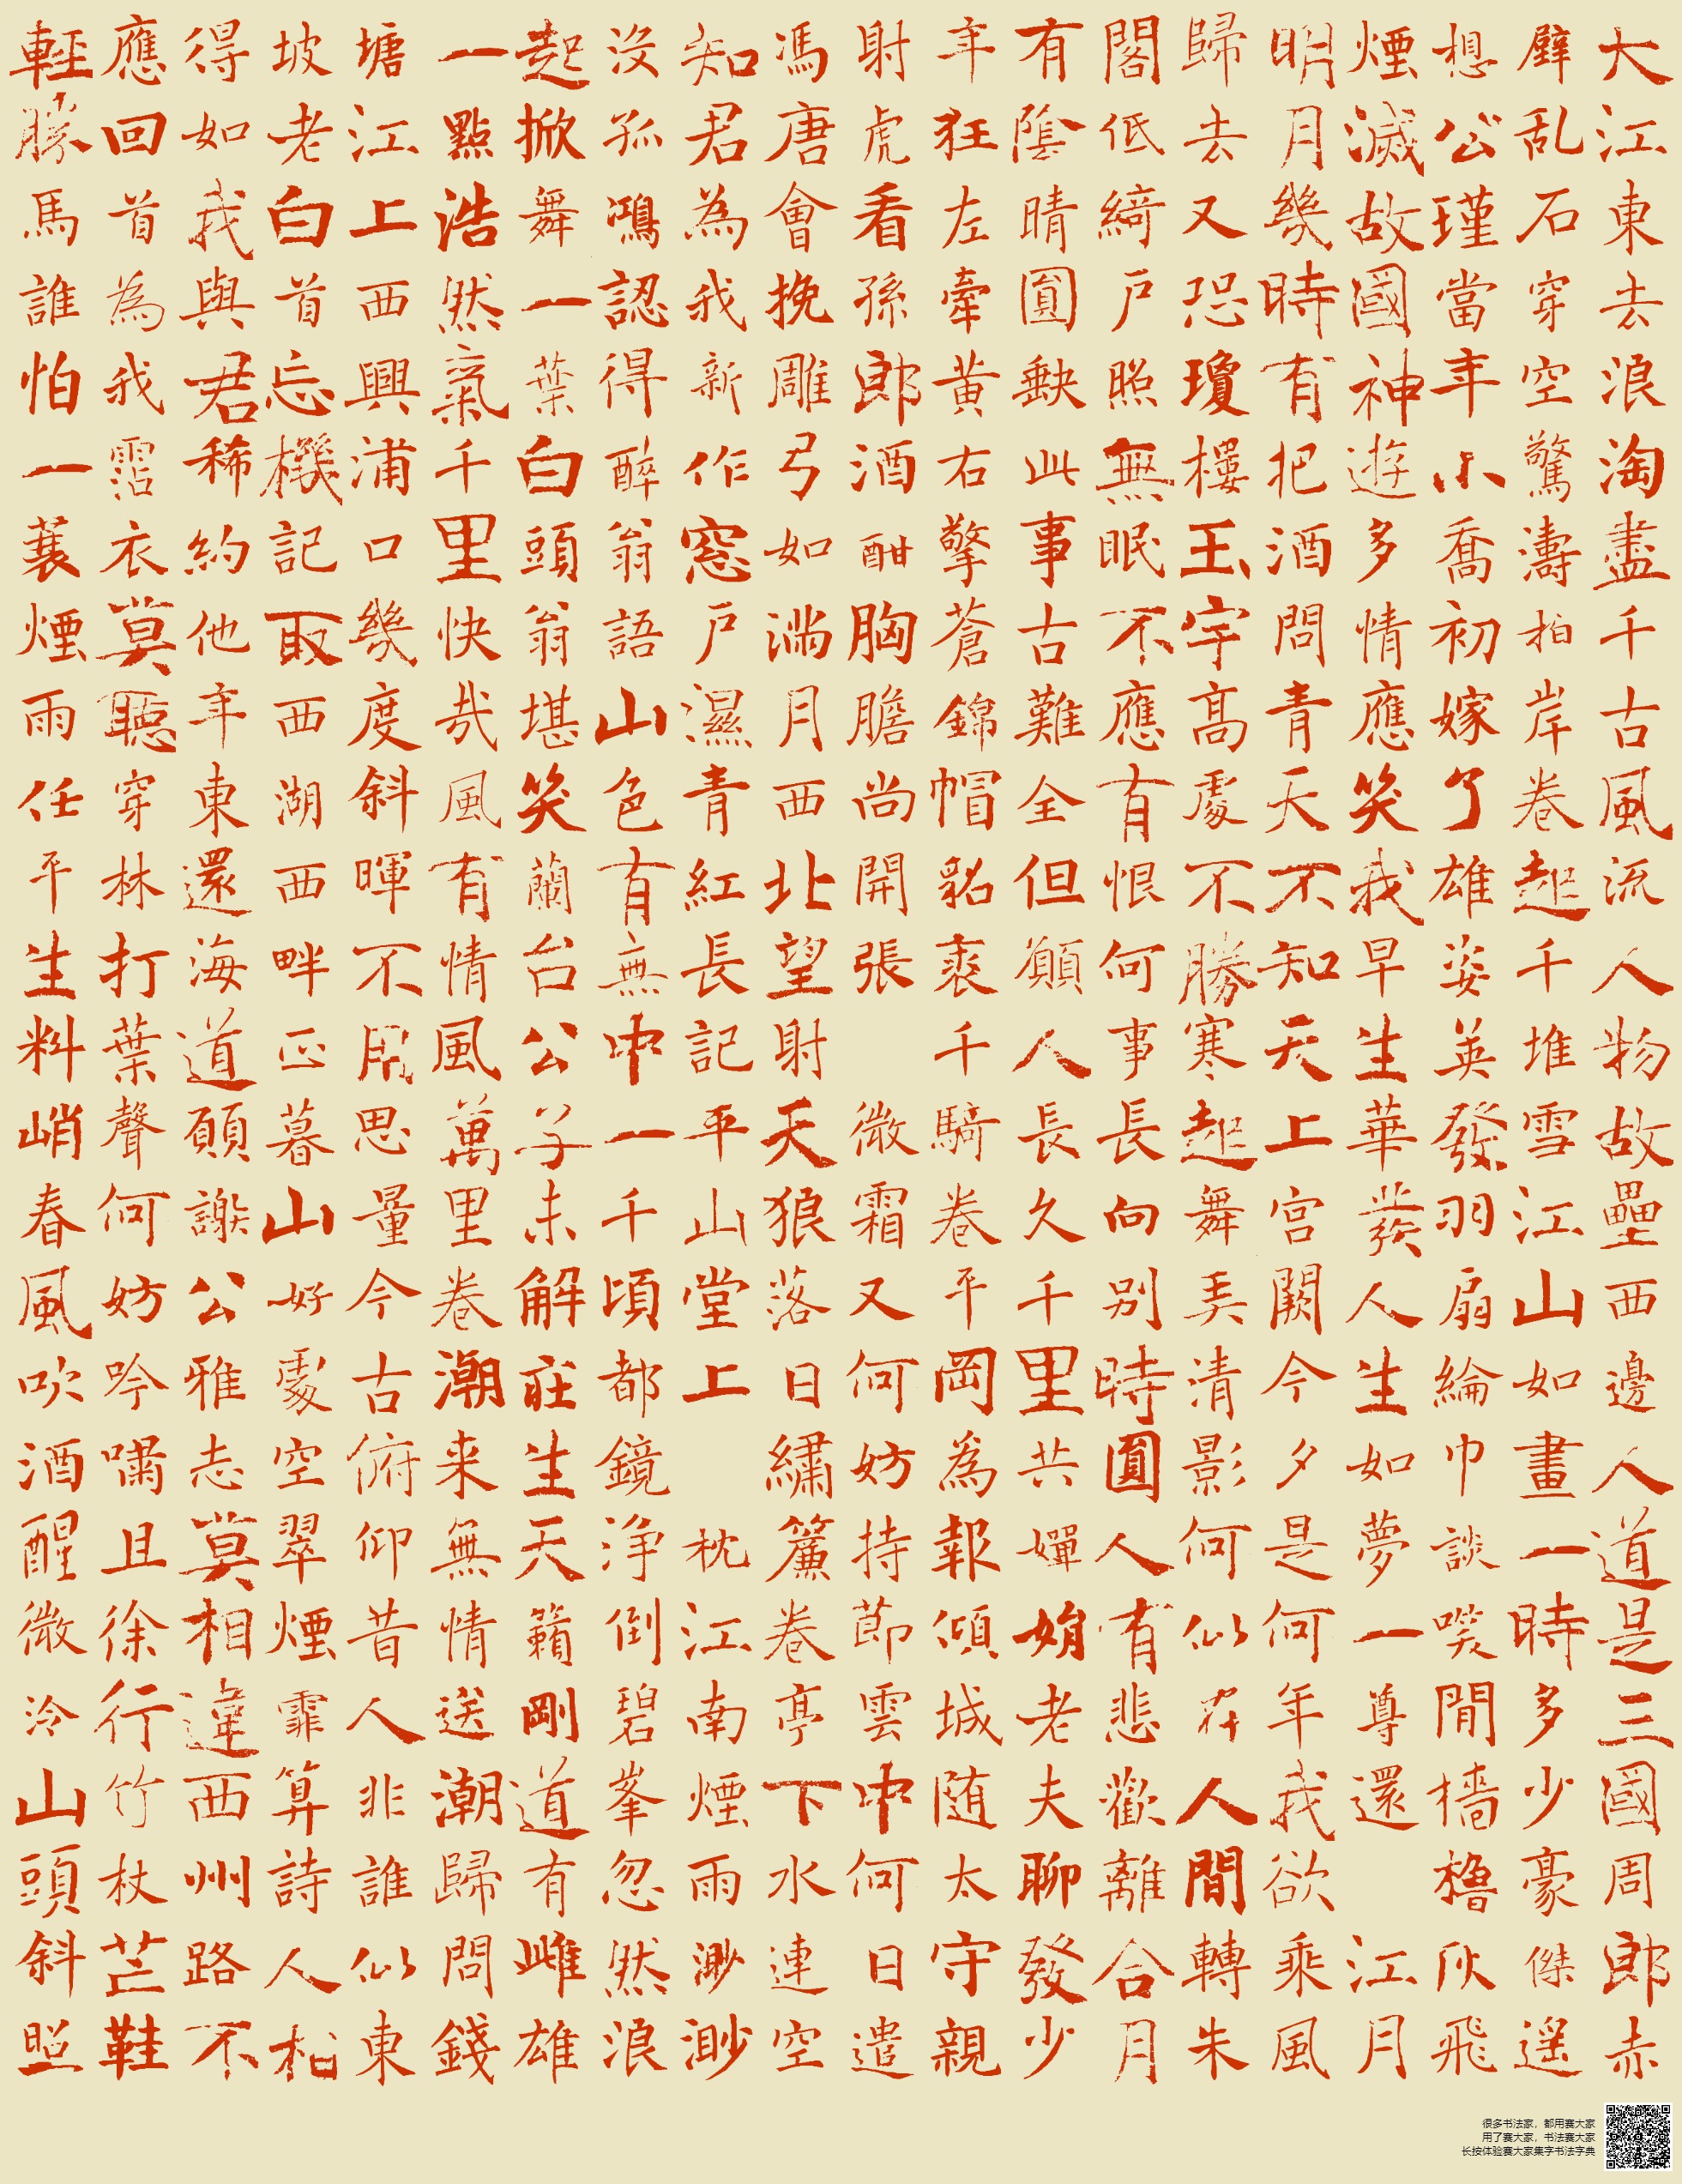 大江東去浪淘盡千古風流人物故壘西邊人道是三國周郎赤
壁乱石穿空驚濤拍岸卷起千堆雪江山如畫一時多少豪傑遥
想公瑾當年小喬初嫁了雄姿英發羽扇綸巾談笑間檣櫓灰飛
煙滅故國神遊多情應笑我早生華髮人生如夢一尊還 江月
明月幾時有把酒問青天不知天上宫闕今夕是何年我欲乘風
歸去又恐瓊樓玉宇高處不勝寒起舞弄清影何似在人間轉朱
閣低綺户照無眠不應有恨何事長向別時圓人有悲歡離合月
有陰晴圓缺此事古難全但願人長久千里共嬋娟老夫聊發少
年狂左牽黄右擎蒼錦帽貂裘千騎卷平岡為報傾城随太守親
射虎看孫郎酒酣胸膽尚開張 微霜又何妨持節雲中何日遣
馮唐會挽雕弓如滿月西北望射天狼落日繡簾卷亭下水連空
知君為我新作窓户濕青紅長記平山堂上 枕江南煙雨渺渺
没孤鴻認得醉翁語山色有無中一千頃都鏡淨倒碧峯忽然浪
起掀舞一葉白頭翁堪笑蘭台公子未解莊生天籟剛道有雌雄
一點浩然氣千里快哉風有情風萬里卷潮来無情送潮歸問錢
塘江上西興浦口幾度斜暉不用思量今古俯仰昔人非誰似東
坡老白首忘機記取西湖西畔正暮山好處空翠煙霏算詩人相
得如我與君稀約他年東還海道願謝公雅志莫相違西州路不
應回首為我霑衣莫聽穿林打葉聲何妨吟嘯且徐行竹杖芒鞋
輕勝馬誰怕一蓑煙雨任平生料峭春風吹酒醒微冷山頭斜照
很多书法家，都用赛大家
用了赛大家，书法赛大家
长按体验赛大家集字书法字典